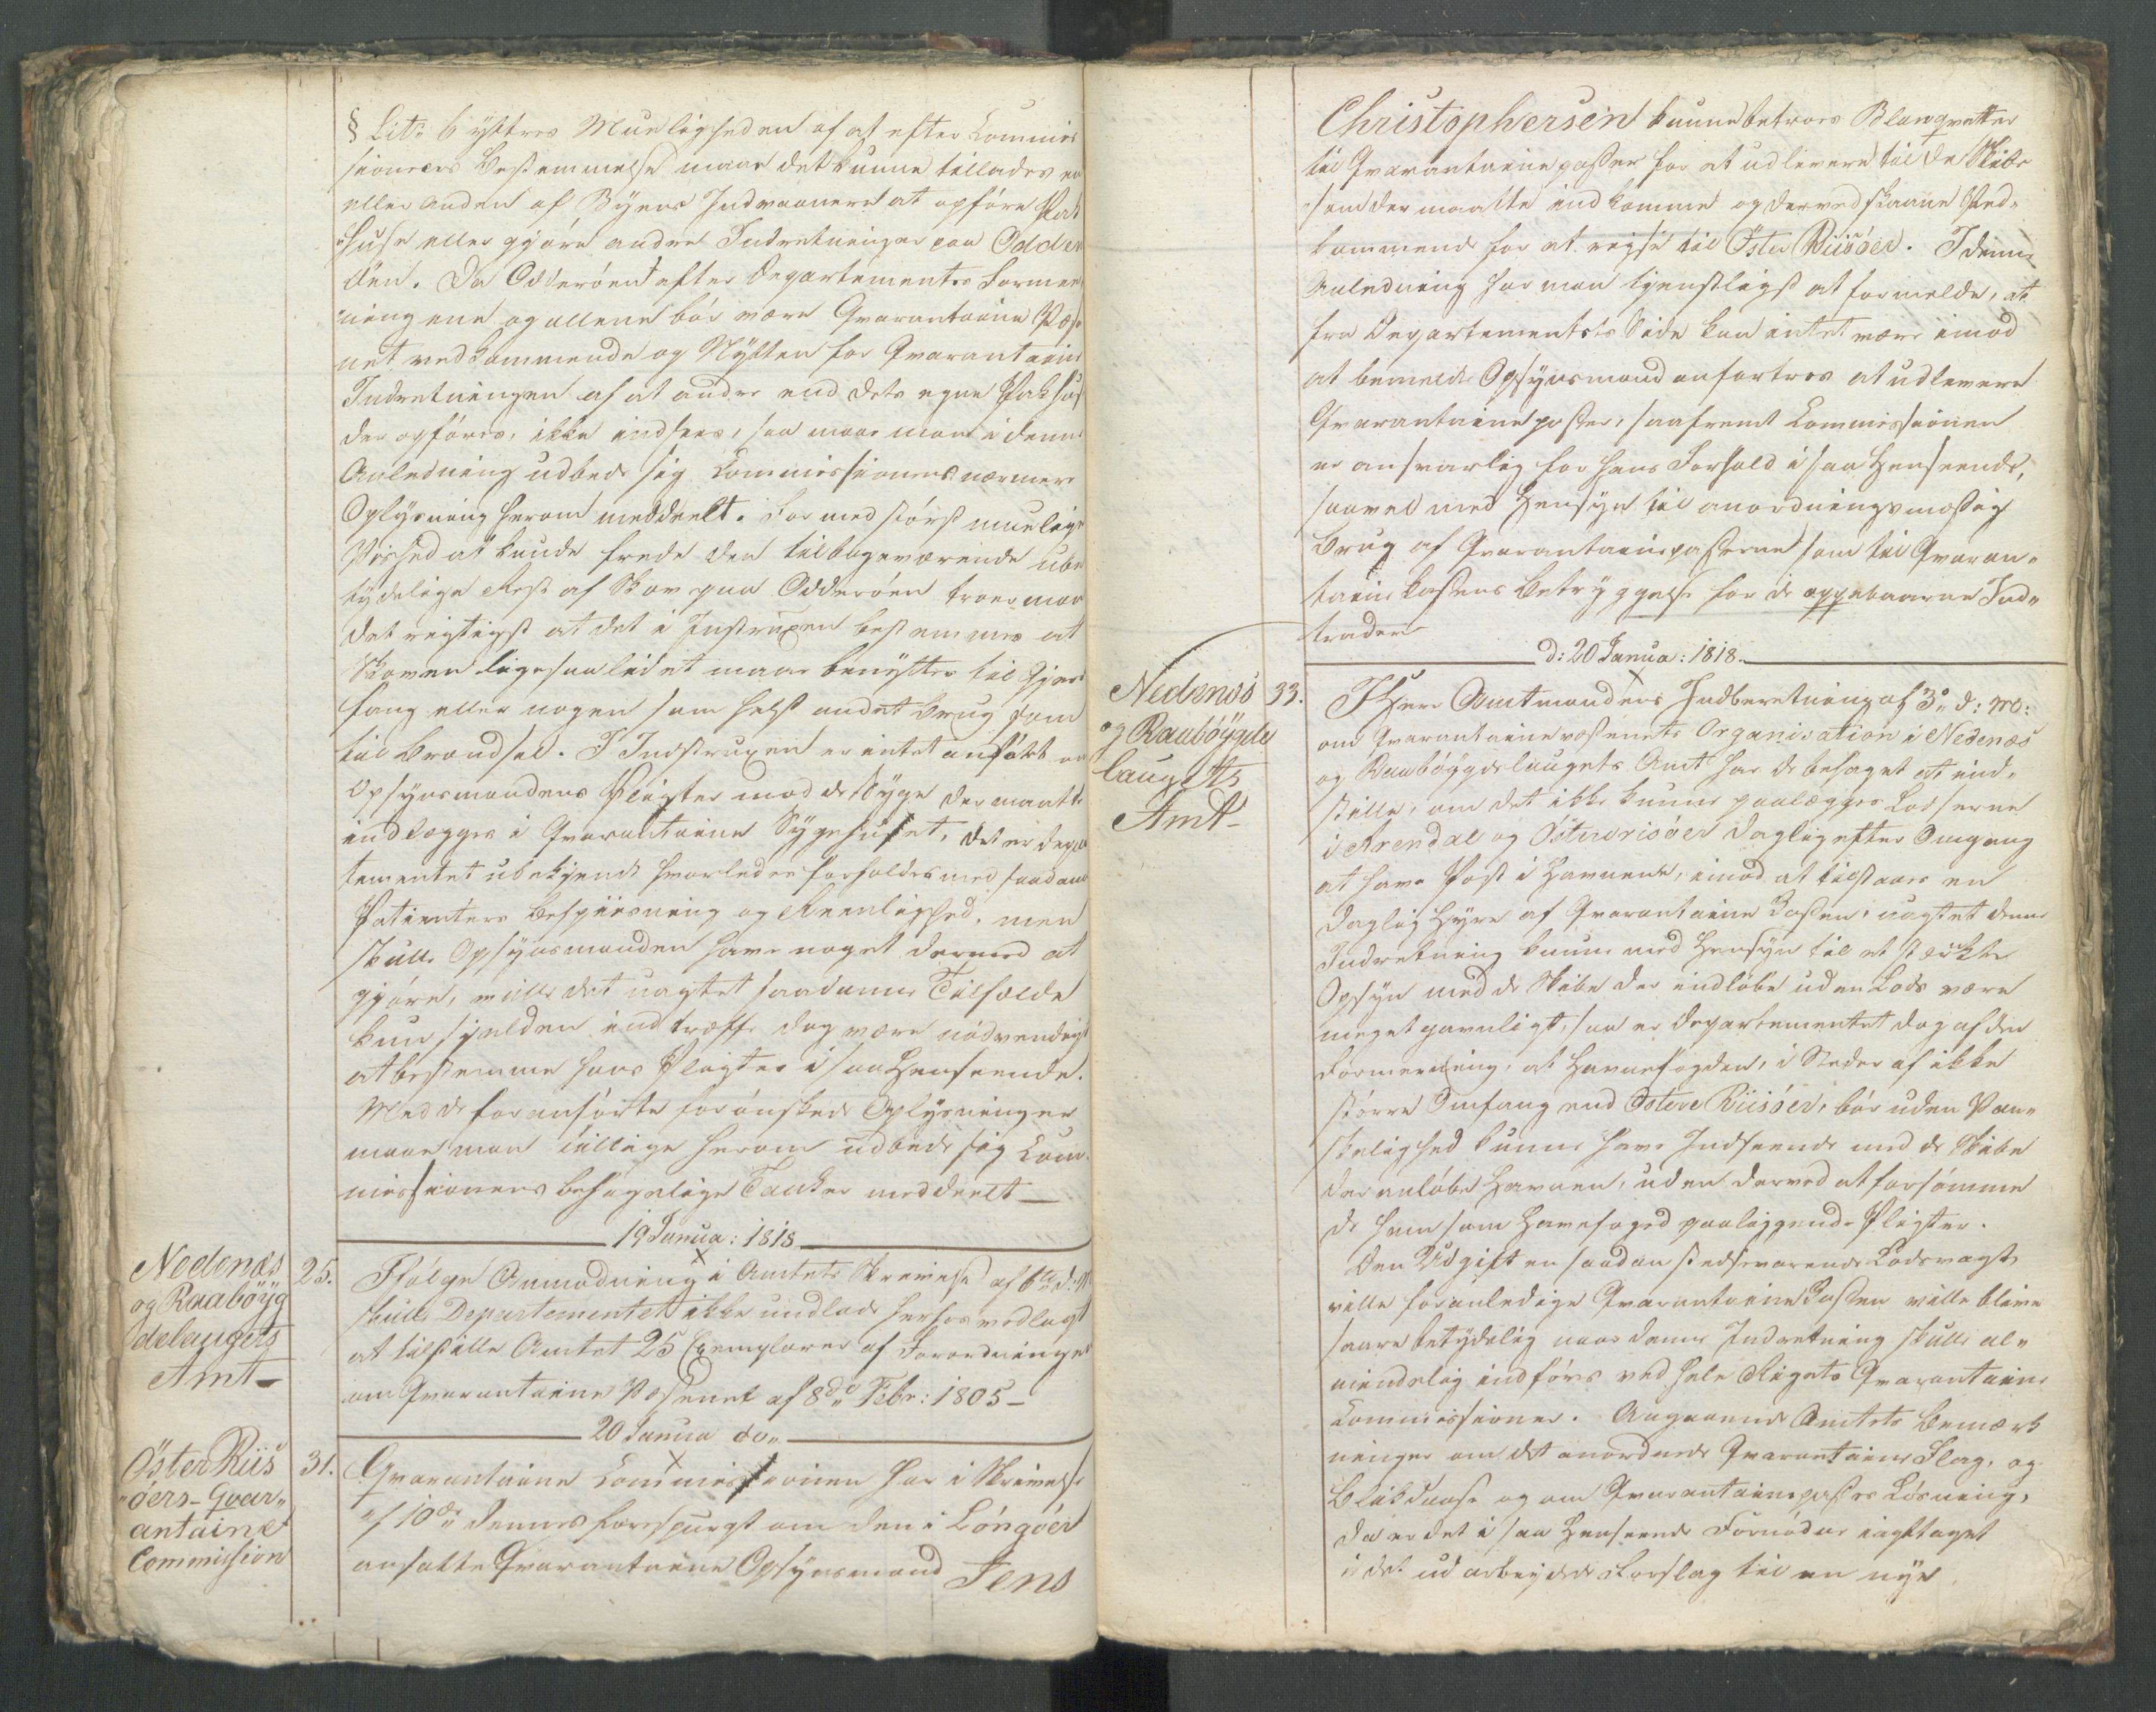 § Litr b yttres Mueligheden af at efter Commis
sionens Bestemmelse maae det kunne tillades een
eller anden af Byens Indvaanere at opføre Pak
"huse eller gjøre andre Indretninger paa Odder
øen. Da Odderøen efter Departementets Formee
"ning ene og allene bør være Qvarantaine Væse
net vedkommende og Nytten for Qvarantaine
Indretningen af at andre end dets egne Pakhuse
der opføres, ikke indsees, saa maae man i denne
Anledning udbede sig Commissionens nærmere
Oplysning herom meddeelt. For med størst muelige
Vished at kunde frede den tilbageværende ube
tydelige Rest af Skov paa Odderøen troer man
det rigtigst at det i Instruxen bestemmes at
Skoven ligesaalidet maae benyttes til Gjær
fang eller nogen som helst andet Brug som
til Brændsel. I Instruxen er intet anført om
Opsynsmandens Pligter mod de Syge der maatte
indlægges i Qvarantaine Sygehuset, det er Depar
tementet ubekjendt hvorledes forholdes med saadanne
Patienters Bespiisning og Reenlighed, men
skulle Opsynsmanden have noget dermed at
gjøre, ville det uagtet saadanne Tilfælde
kun sjelden indtræffe dog være nødvendigt
at bestemme hans Pligter i saa Henseende.
Med de foranførte forønskede Oplysninger
maae man tillige herom udbede sig Com
missionens behagelige Tanker meddeelt
19 Janua: 1818
Nedenæs
og Raabøyg
delaugets
Amt
25.
Ifølge Anmodning i Amtets Skrivelse af 6te d: M
skulle Departementet ikke undlade herhos vedlagt
at tilstille Amtet 25 Exemplarer af Forordningen
om Qvarantaine Væsenet af 8de Febr: 1805
20 Janua do
Øster Riis
"øers Qvar"
antaine
Commission
31.
Qvarantaine Commissionen har i Skrivelse
af 10de dennes forespurgt om den i Løngøer
ansatte Qvarantaine Opsynsmand Jens
Christophersen kunne betroes Blanqvetter
til Qvarantainepasser for at udlevere til de Skibe
som der maatte indkomme og derved skaane Ved"
kommende for at reyse til Øster Riisøer. I denne
Anledning har man tjenstligst at formelde, at
fra Departementets Side kan intet være imod
at bemeldte Opsynsmand anfortroes at udlevere
Qvarantainepasser, saafremt Commissionen
er ansvarlig for hans Forhold i saa Henseende,
saavel med Hensyn til anordningsmæssig
Brug af Qvarantainepasserne som til Qvaran"
taine Kassens Betryggelse for de oppebaarne Ind"
trader
d: 20 Janua: 1818.
Nedenæs
og Raabøygde
laugets
Amt
33.
I Herr Amtmandens Indberetning af 3de d: M:
om Qvarantainevæsenets Organisation i Nedenæs
og Raabøygdelaugets Amt har de behaget at ind"
stille, om det ikke kunne paalægges Lodserne
i Arendal og Østerriisøer daglig efter Omgang
at have Post i Havnene, imod at tilstaaes en
daglig Hyre af Qvarantaine Kassen, uagtet denne
Indretning kunne med Hensyn til et strickte
Opsyn med de Skibe der indløbe uden Lods være
meget gavnligt, saa er Departementet dog af den
Formeening, at Havnefogden, i Steder af ikke
større Omfang end Østere Riisøer, bør uden Van"
skelighed kunne have Indseende med de Skibe
der anløbe Havnen, uden derved at forsømme
de ham som Havnefoged paaliggende Pligter.
Den Udgift en saadan stedsevarende Lodsvagt
ville foranledige Qvarantaine Kassen ville blive
saare betydelig naar denne Indretning skulle al"
mindelig indføres ved hele Rigets Qvarantaine
Commissioner. Angaaende Amtets Bemærk
ninger om det anordnede Qvarantaine Flag, og
Blikdaase og om Qvarantainepassers Løsning,
da er det i saa Henseende Fornødne iagttaget
i det udarbeydede Forslag til en nye